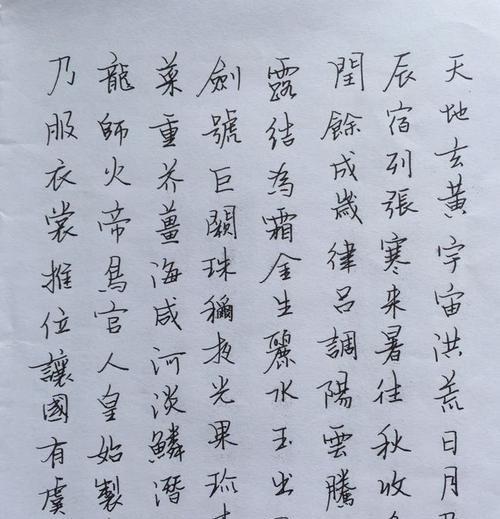 天地玄黃宇宙洪荒日月
辰宿列張寒来暑往秋收
閏餘成歲律呂調陽雲騰
露結為霜金生麗水玉出
劍號巨闕珠稱夜光果珎
菜重芥薑海咸河淡鱗潛
龍師火帝鳥官人皇始製
乃服衣裳推位讓國有虞